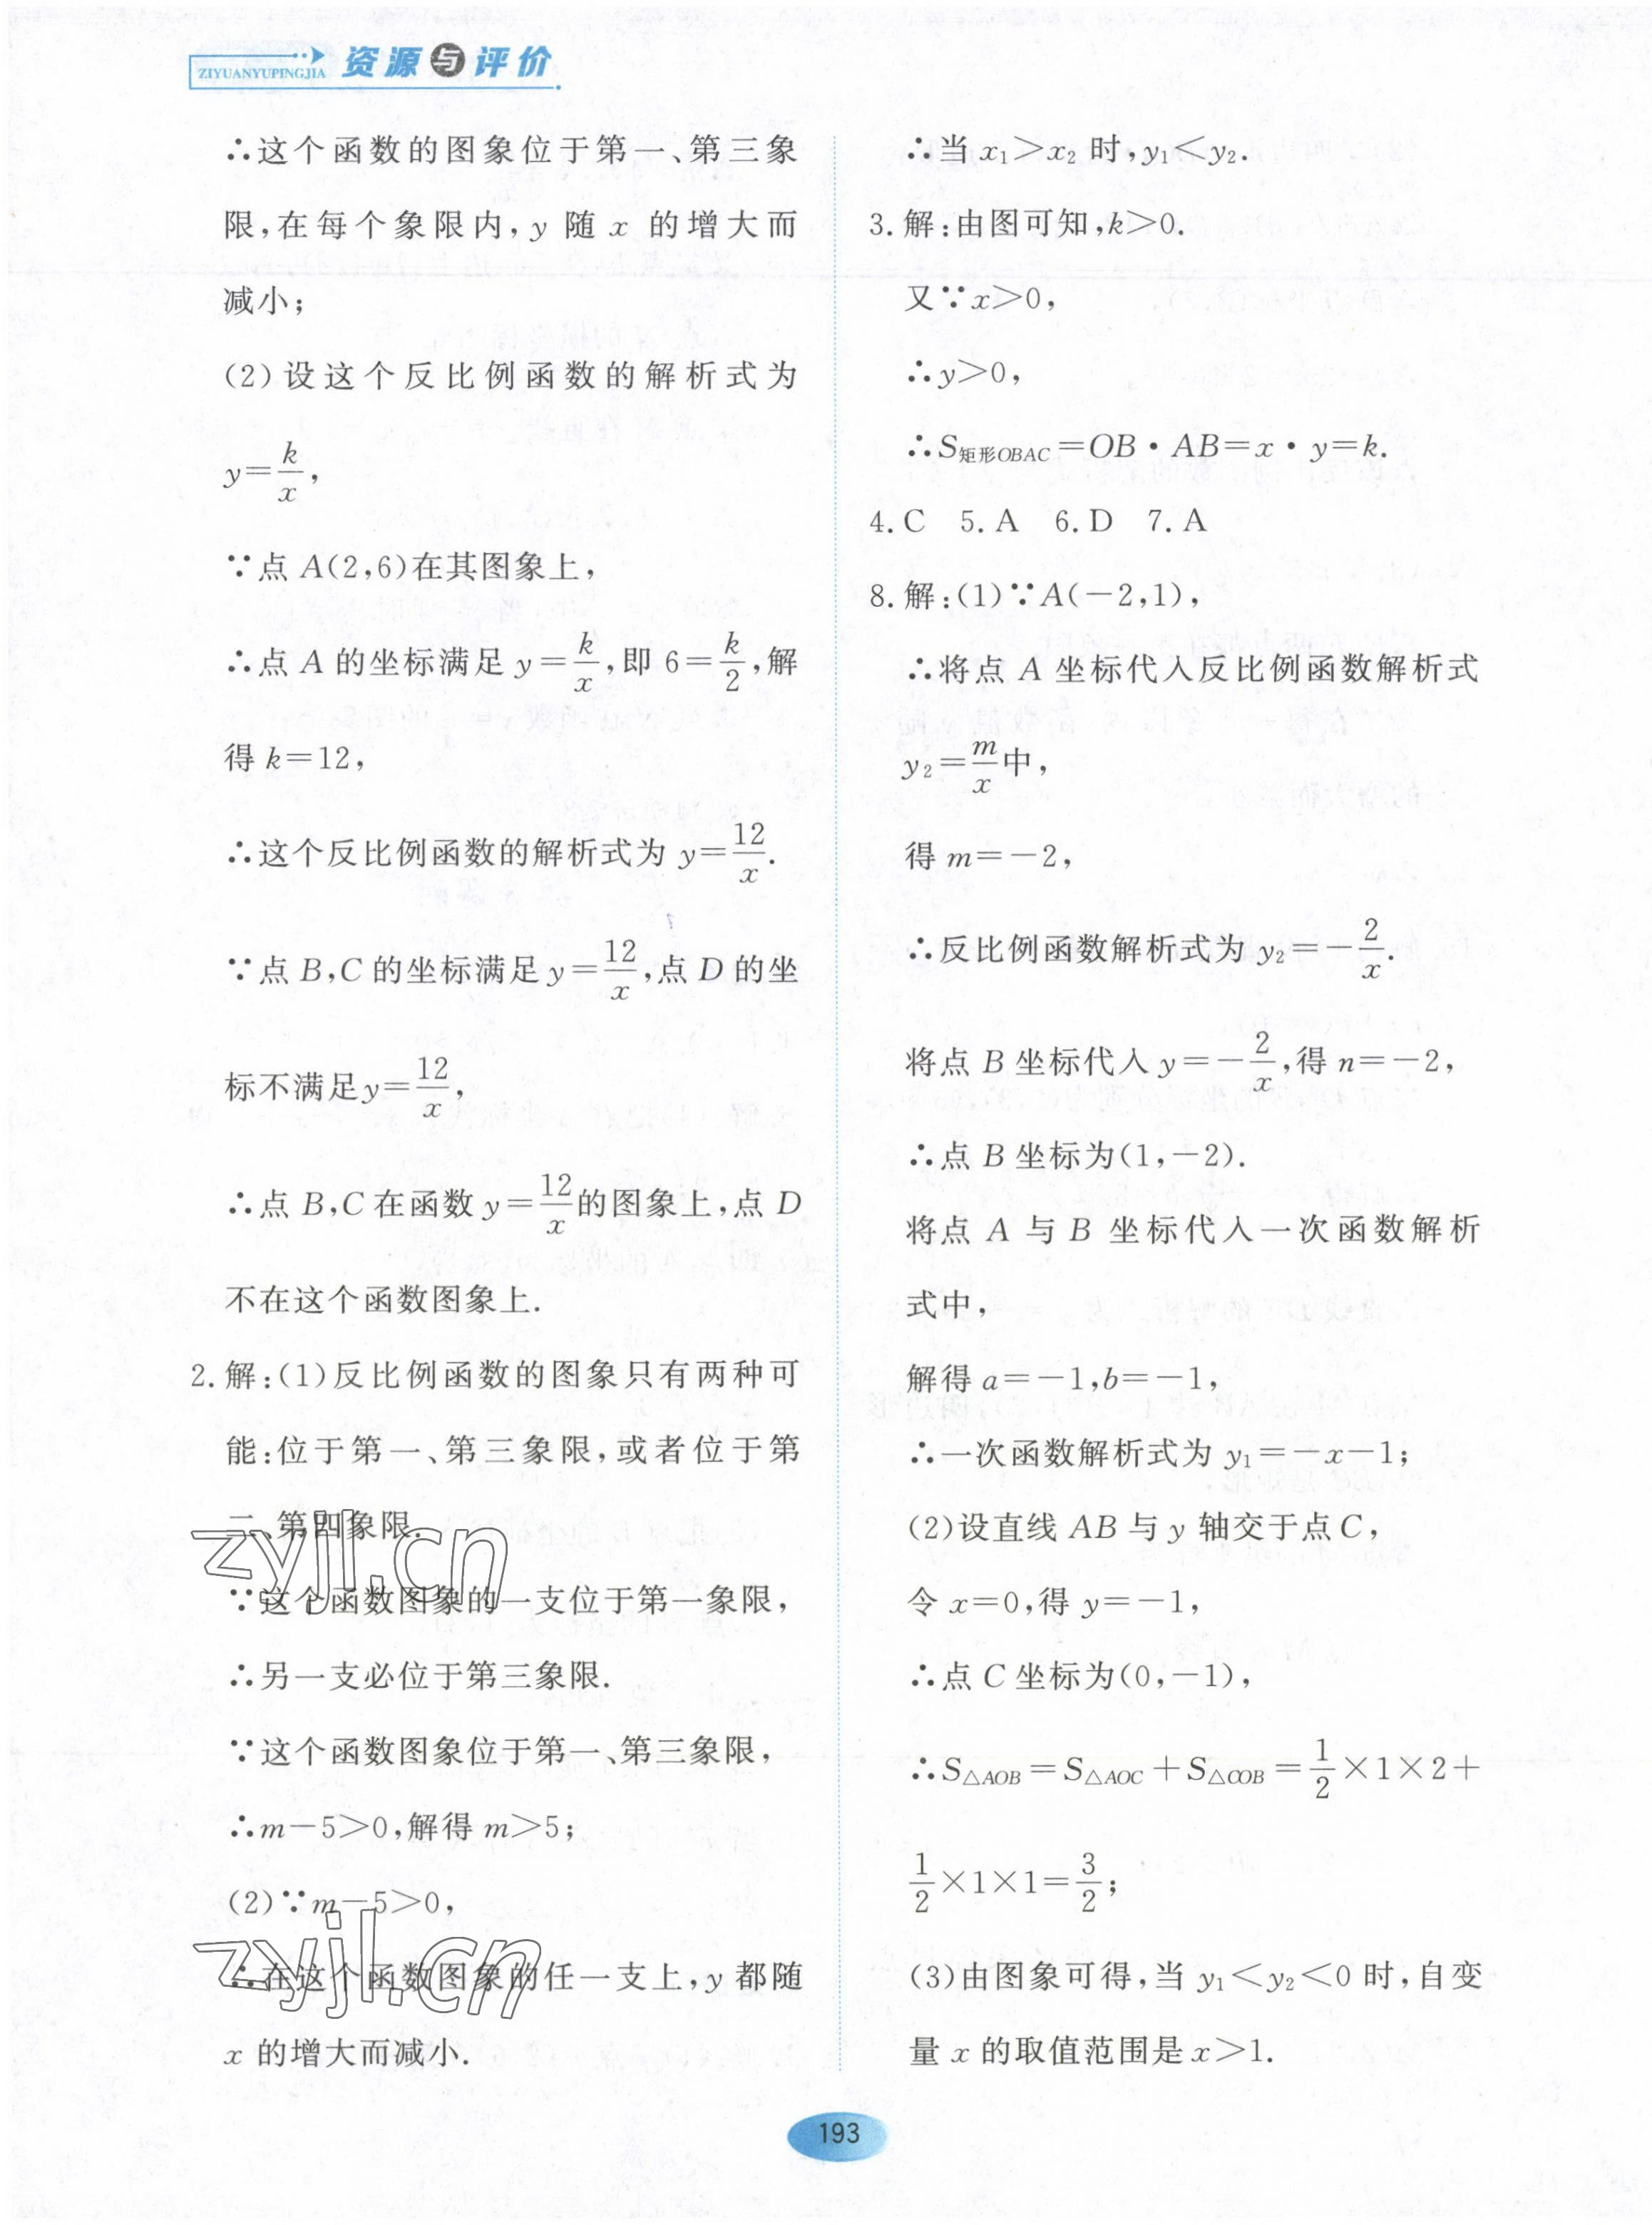 ZIYUANYUPINGJIA 资源与评价
∴这个函数的图象位于第一、第三象
限,在每个象限内,y 随 x 的增大而
减小;
(2)设这个反比例函数的解析式为
y=k/x,
∵点 A(2,6)在其图象上,
∴点 A 的坐标满足 y=k/x,即 6=k/2,解
得 k=12,
∴这个反比例函数的解析式为 y=12/x.
∵点 B,C 的坐标满足 y=12/x,点 D 的坐
标不满足y=12/x,
∴点 B,C 在函数 y=12/x的图象上,点 D
不在这个函数图象上.
2.解:(1)反比例函数的图象只有两种可
能:位于第一、第三象限,或者位于第
二、第四象限.
∵这个函数图象的一支位于第一象限,
∴另一支必位于第三象限.
∵这个函数图象位于第一、第三象限,
∴m-5>0,解得 m>5;
(2)∵m-5>0,
∴在这个函数图象的任一支上,y 都随
x 的增大而减小.
∴当 x₁>x₂ 时,y₁<y₂.
3.解:由图可知,k>0.
又∵x>0,
∴y>0,
∴S矩形OBAC=OB·AB=x·y=k.
4.C 5.A 6.D 7.A
8.解:(1)∵A(-2,1),
∴将点 A 坐标代入反比例函数解析式
y₂=m/x中,
得 m=-2,
∴反比例函数解析式为 y₂=-2/x.
将点 B 坐标代入 y=-2/x,得 n=-2,
∴点 B 坐标为(1,-2).
将点 A 与 B 坐标代入一次函数解析
式中,
解得 a=-1,b=-1,
∴一次函数解析式为 y₁=-x-1;
(2)设直线 AB 与 y 轴交于点C,
令 x=0,得 y=-1,
∴点 C 坐标为(0,-1),
∴S△AOB=S△AOC+S△COB=1/2×1×2+
1/2×1×1=3/2;
(3)由图象可得,当 y₁<y₂<0 时,自变
量 x 的取值范围是x>1.
zyjl.cn
zyjl.cn
193